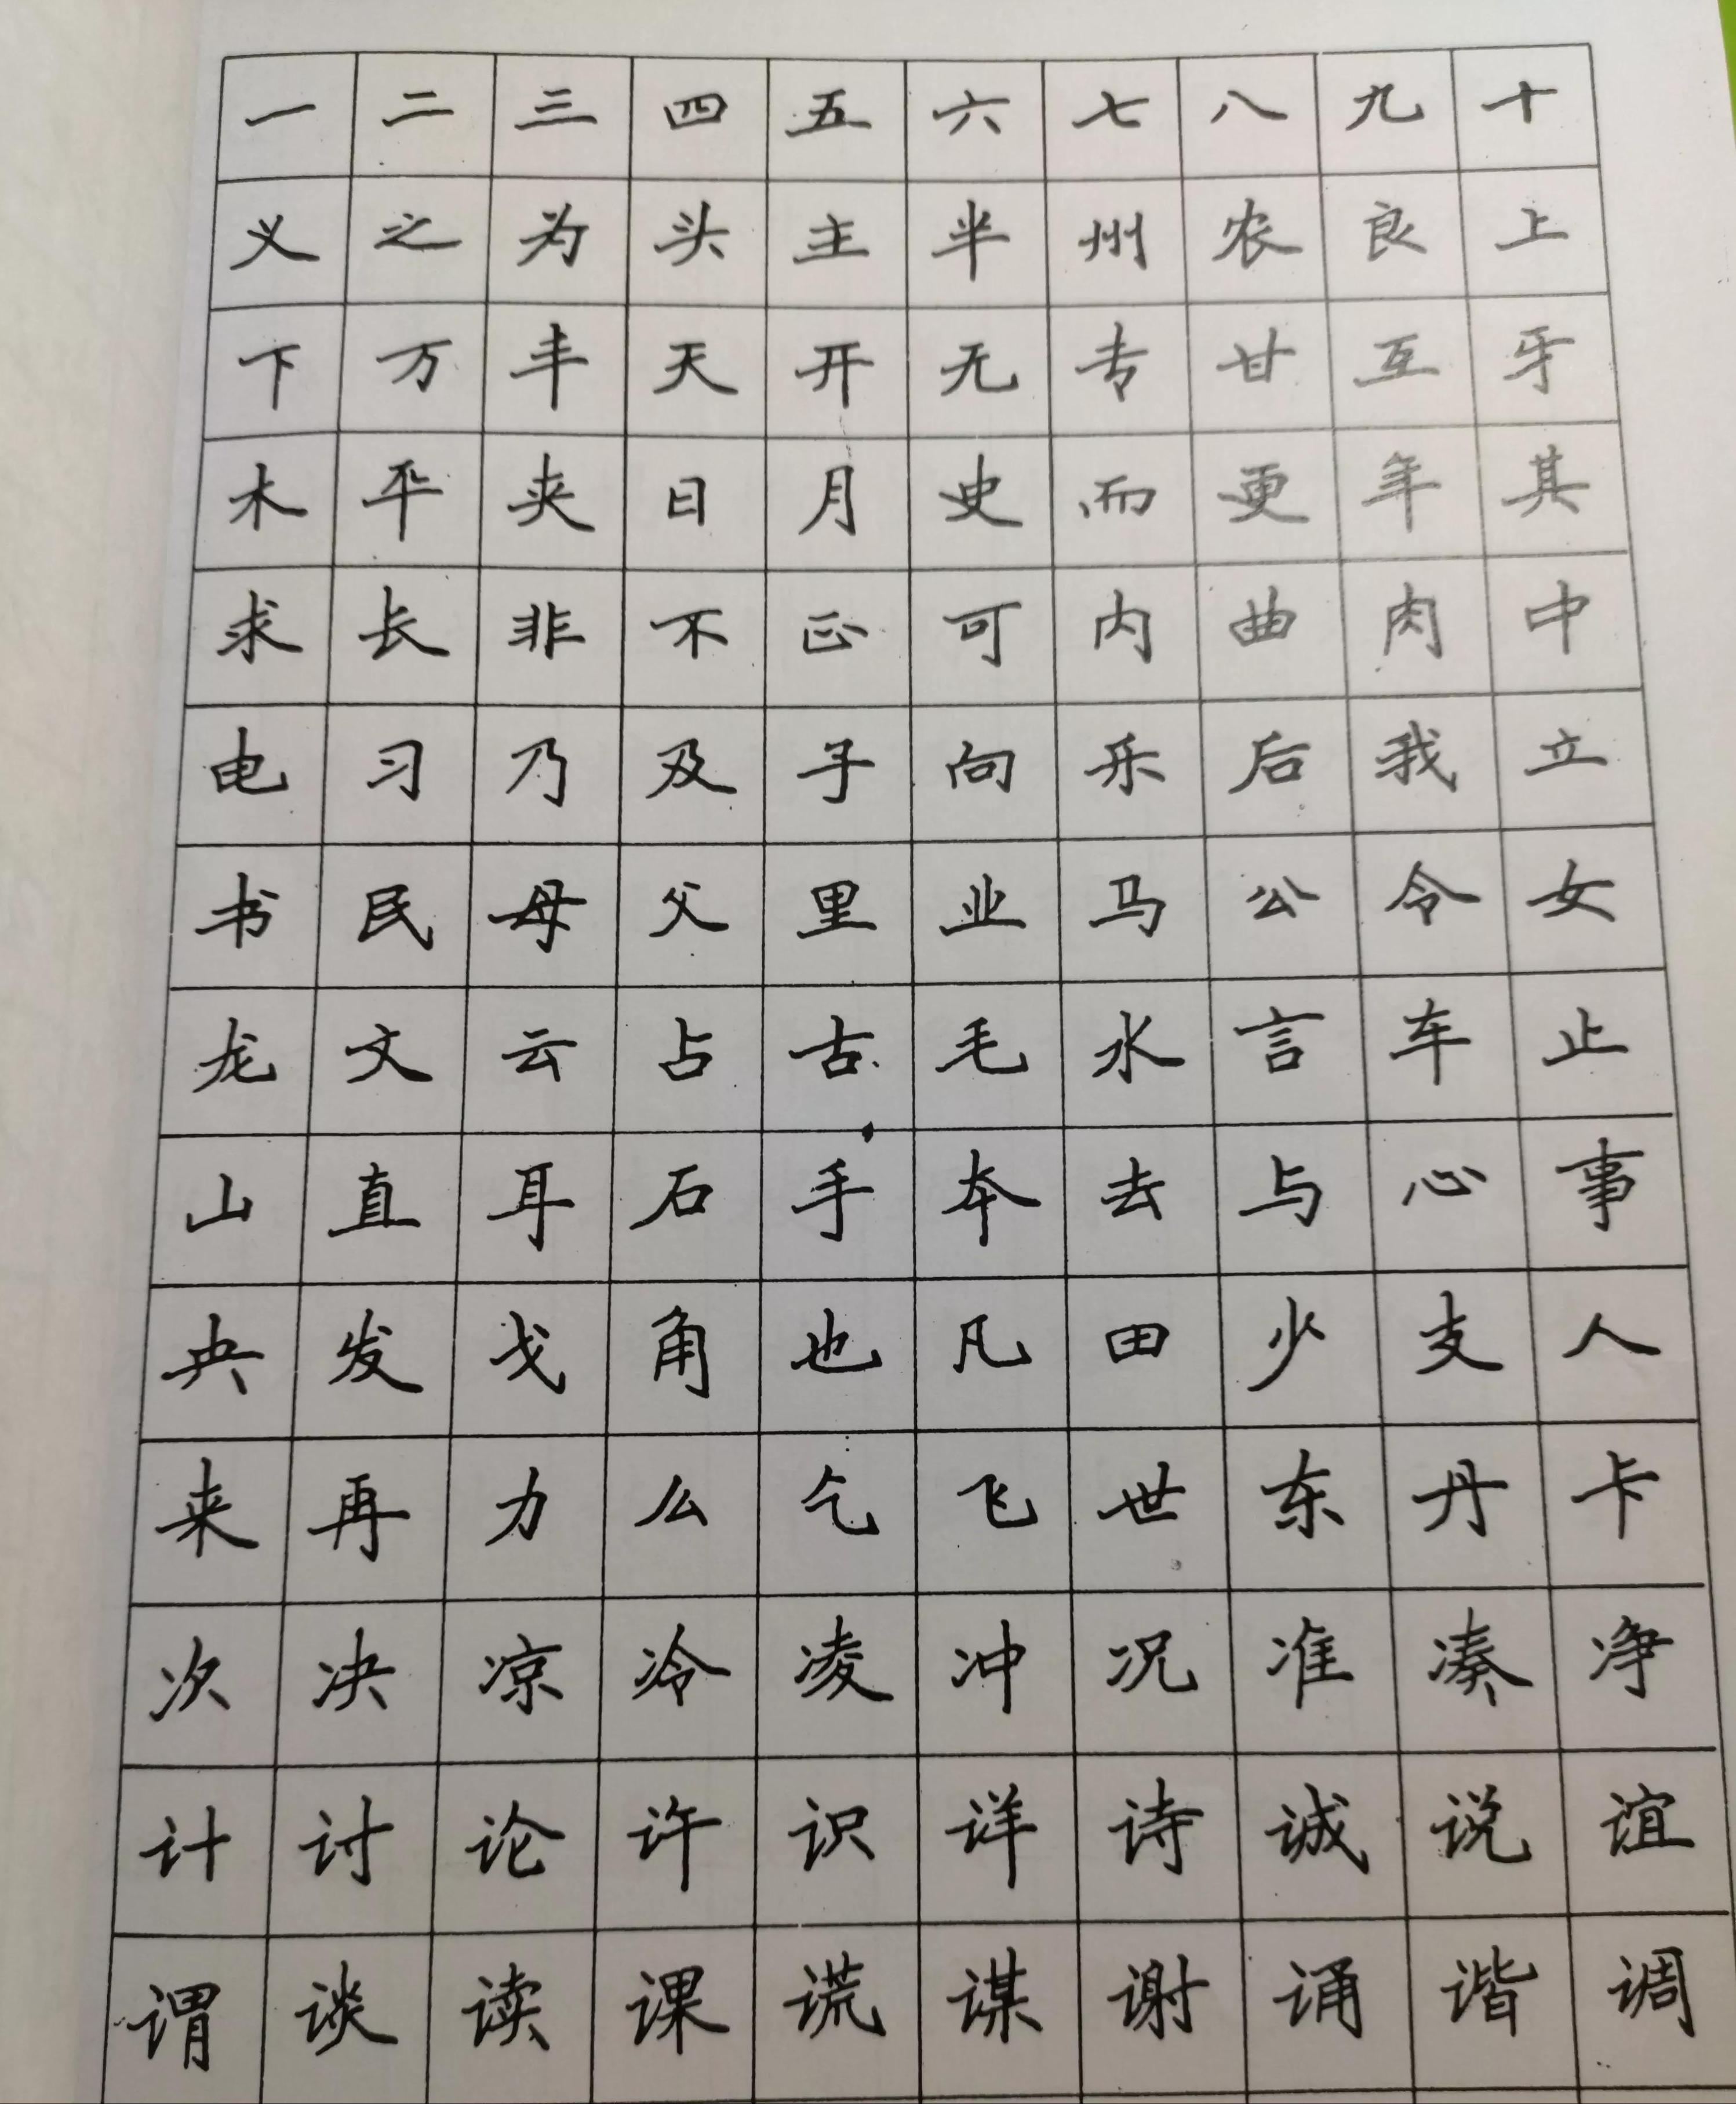 一 二 三 四 五 六 七 八 九 十
义 之 为 头 主 半 州 农 良 上
下 万 丰 天 开 无 专 甘 互 牙
木 平 夹 日 月 史 而 更 年 其
求 长 非 不 正 可 内 曲 肉 中
电 习 乃 及 子 向 乐 后 我 立
书 民 母 父 里 业 马 公 令 女
龙 文 云 占 古 毛 水 言 车 止
山 直 耳 石 手 本 去 与 心 事
央 发 戈 角 也 凡 田 少 支 人
来 再 力 么 乞 飞 世 东 丹 卡
次 决 凉 冷 凌 冲 况 准 凑 净
计 讨 论 许 识 详 诗 诚 说 谊
谓 谈 读 课 谎 谋 谢 诵 谐 调